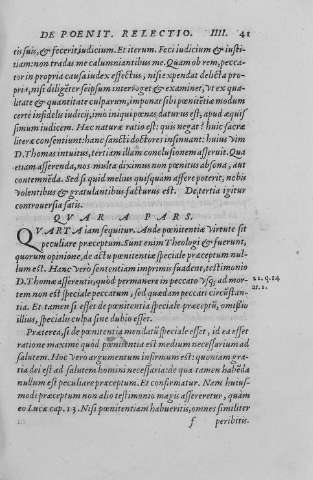 DE POENIT. RELECTIO. IIII. 41
eis suis, & fecerit iudicium. Et iterum. Feci iudicium & iusti-
tiam: non tradas me calumniantibus me. Quam ob rem, pecca-
tor in propria causa iudex effectus, nisi expendat delicta pro-
pria, nisi diligēter seipsum interroget & examinet, vt ex qua-
litate & quantitate culparum, imponat sibi pœnitētiæ modum
certè infidelis iudicij, imò iniqui pœnas daturus est, apud æquis-
simum iudicem. Hæc naturæ ratio est: quis negat? huic sacræ
literæ consentiunt: hanc sancti doctores insinuant: huius vim
D. Thomas intuitus, tertiam illam conclusionem asseruit. Qua
etiam asserenda, nos multa diximus non pœnitus absona, aut
contemnēda. Sed si quid melius quisquam afferre poterit, nobis
volentibus & gratulantibus facturus est. De tertia igitur
controuersia satis.
QVARTA PARS.
QVARTA iam sequitur. An de pœnitentiæ virtute sit
peculiare præceptum. Sunt enim Theologi & fuerunt,
quorum opinione, de actu pœnitentiæ speciale præceptum nul-
lum est. Hanc verò sententiam imprimis suadent, testimonio
D. Thomæ asserentis, quòd permanere in peccato vsq; ad mor-
tem non est speciale peccatum, sed quædam peccati circūstan-
tia. Et tamen si esset de pœnitentia speciale præceptū, omissio
illius, specialis culpa sine dubio esset.
22.q.14
ar.2.
Præterea, si de pœnitentia mandatū speciale esset, id ea esset
ratione maximè quòd pœnitentia est medium necessarium ad
salutem. Hoc verò argumentum infirmum est: quoniam gra-
tia dei est ad salutem homini necessaria: de qua tamen habēda
nullum est peculiare præceptum. Et confirmatur. Nam huius-
modi præceptum non alio testimonio magis assereretur, quàm
eo Lucæ cap. 13. Nisi pœnitentiam habueritis, omnes similiter
f peribitis.